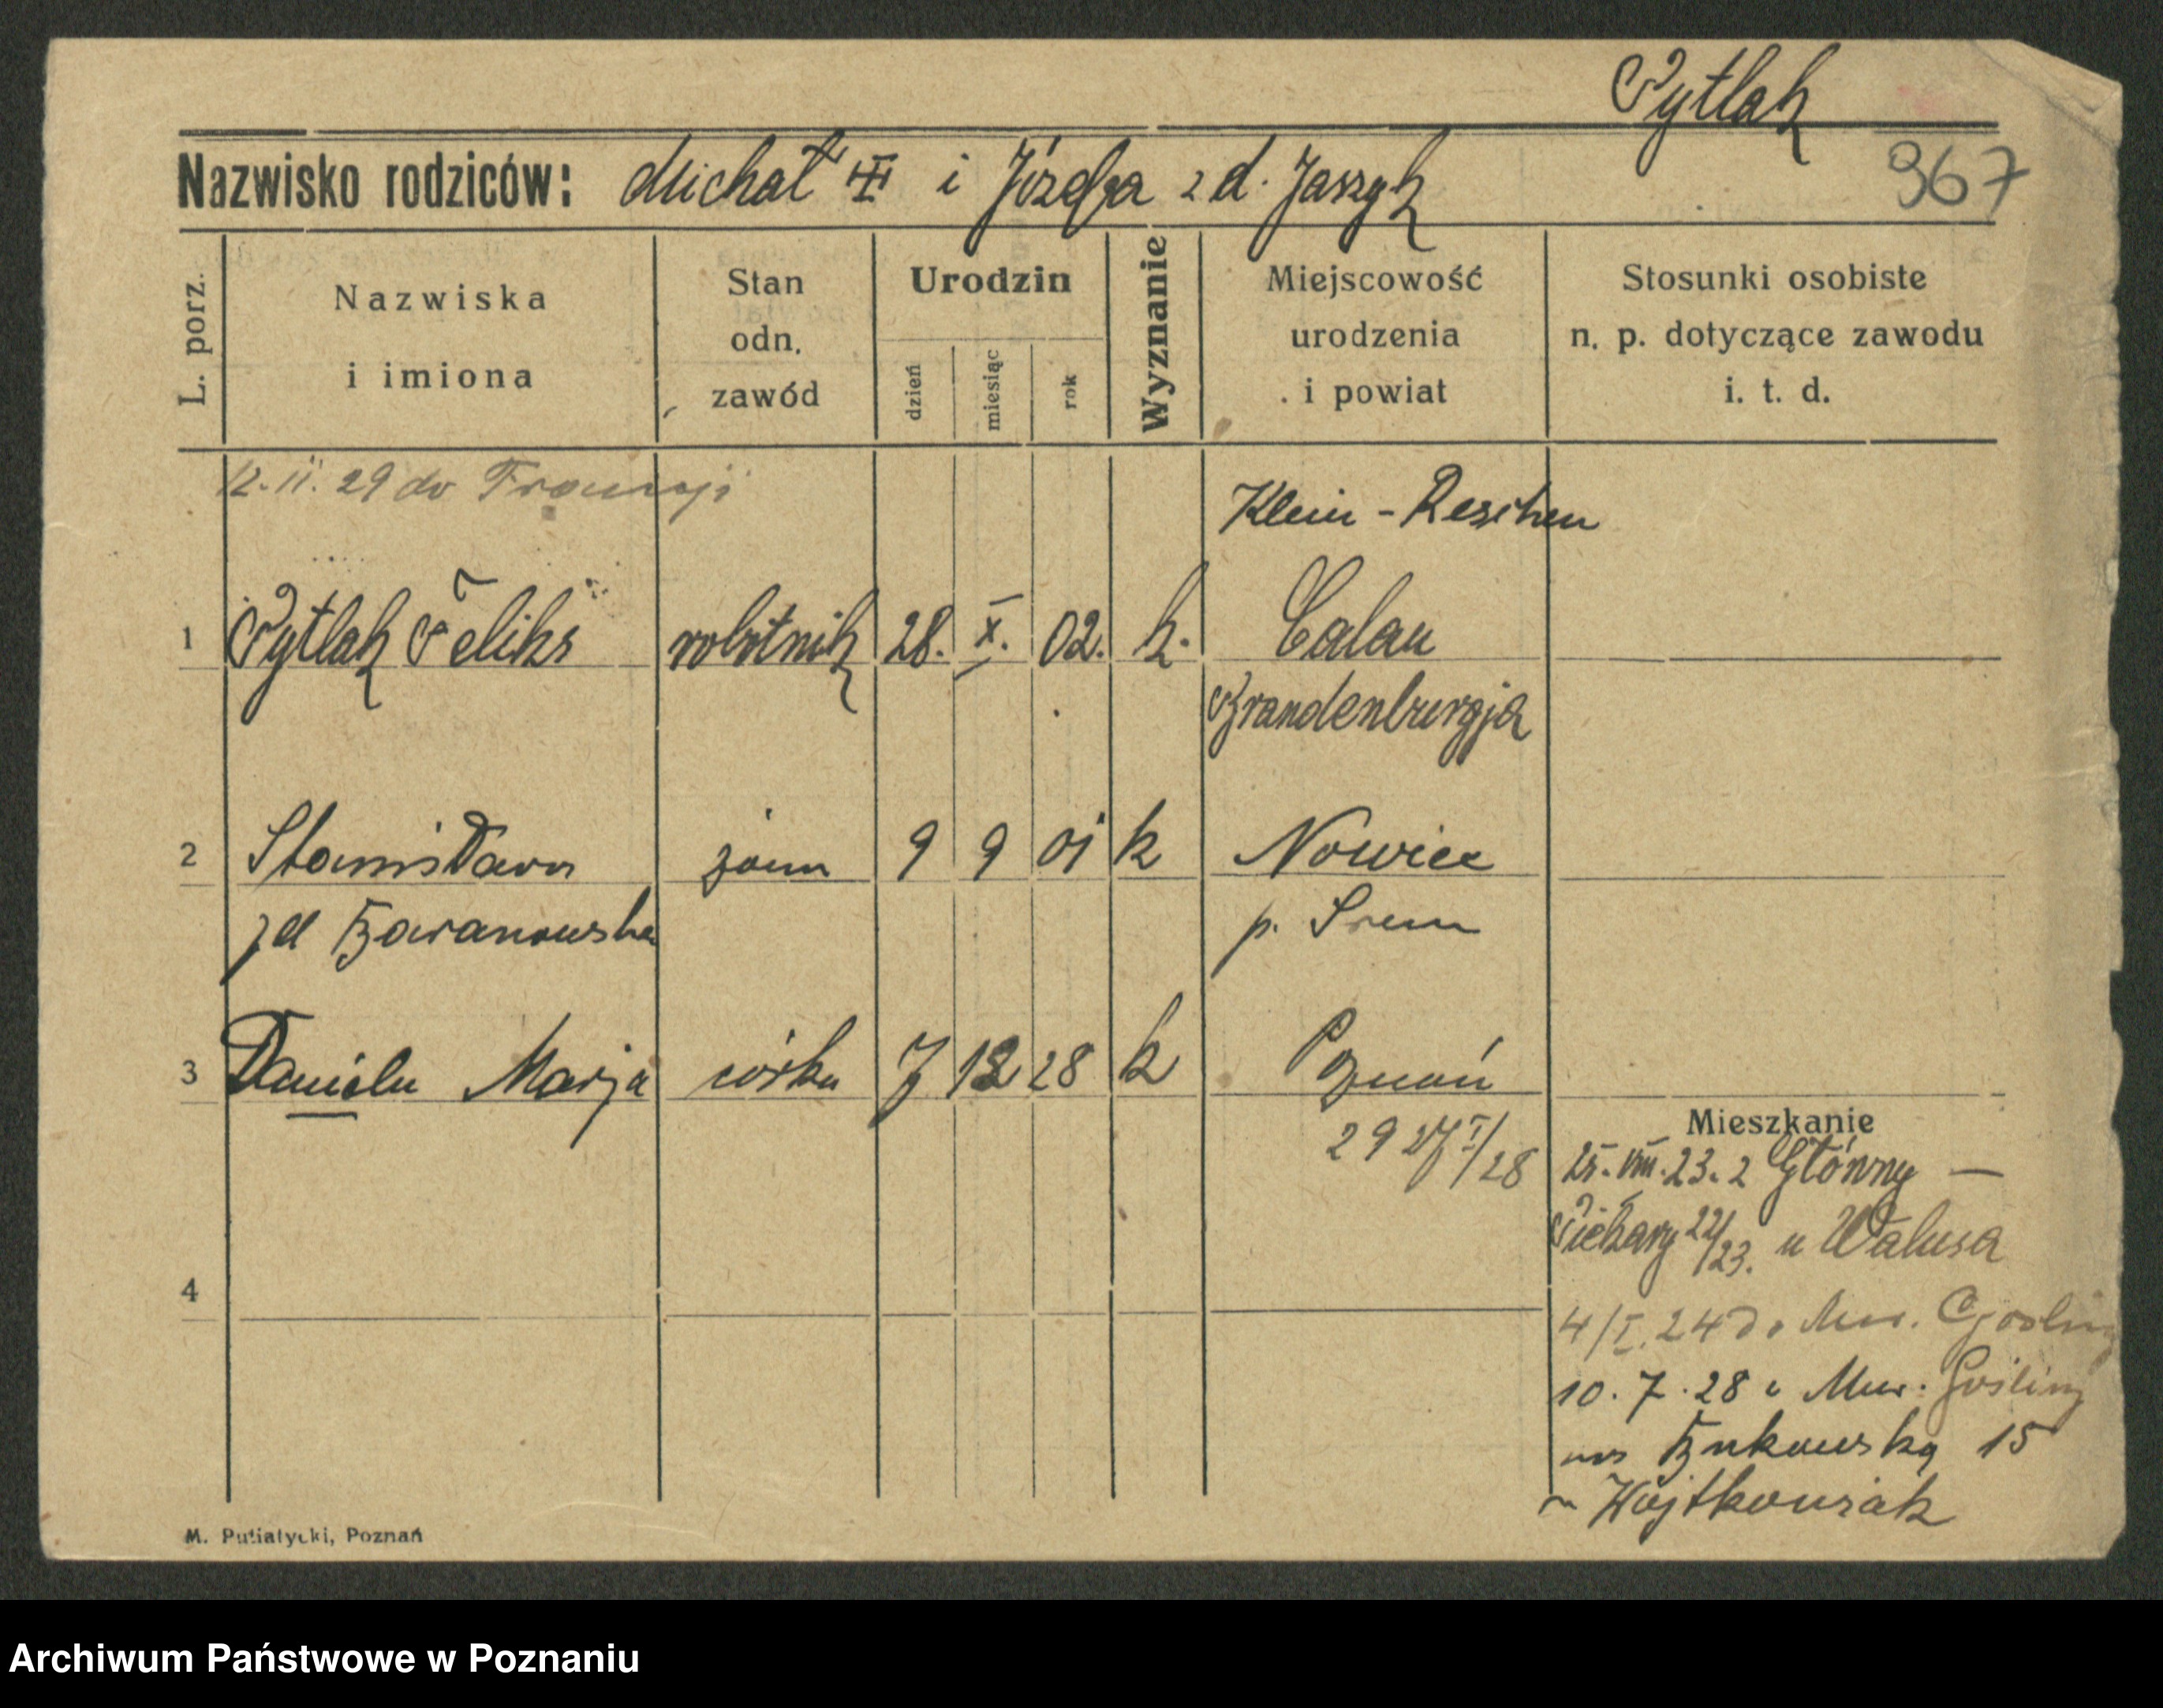 Pytlak
967
Nazwisko rodziców: Michał i Józefa z d. Jaszyk
L. porz.
Nazwiska
i imiona
Stan
odn.
zawód
Urodzin
dzień
miesiąc
rok
Wyznanie
Miejscowość
urodzenia
i powiat
Stosunki osobiste
n. p. dotyczące zawodu
i. t. d.
12. 11. 29 do Francji
Klein - Reschen
1 Pytlak Feliks robotnik 28. X. 02. k. Calau
Brandenburgja
2 Stanisława żona 9 9 01 k Nowiec
zd Baranowska p. Srem
3 Daniela Marja córka 7 12 28 k Poznań
29 I/28
Mieszkanie
25. VIII. 23. z Główny —
Piekary 22/23. u Walusa
4
4/I. 24 do Mur. Gosliny
10. 7. 28 z Mur. Gośliny
na Bukowską 15
u Wojtkowiak
M. Putiatycki, Poznań
Archiwum Państwowe w Poznaniu